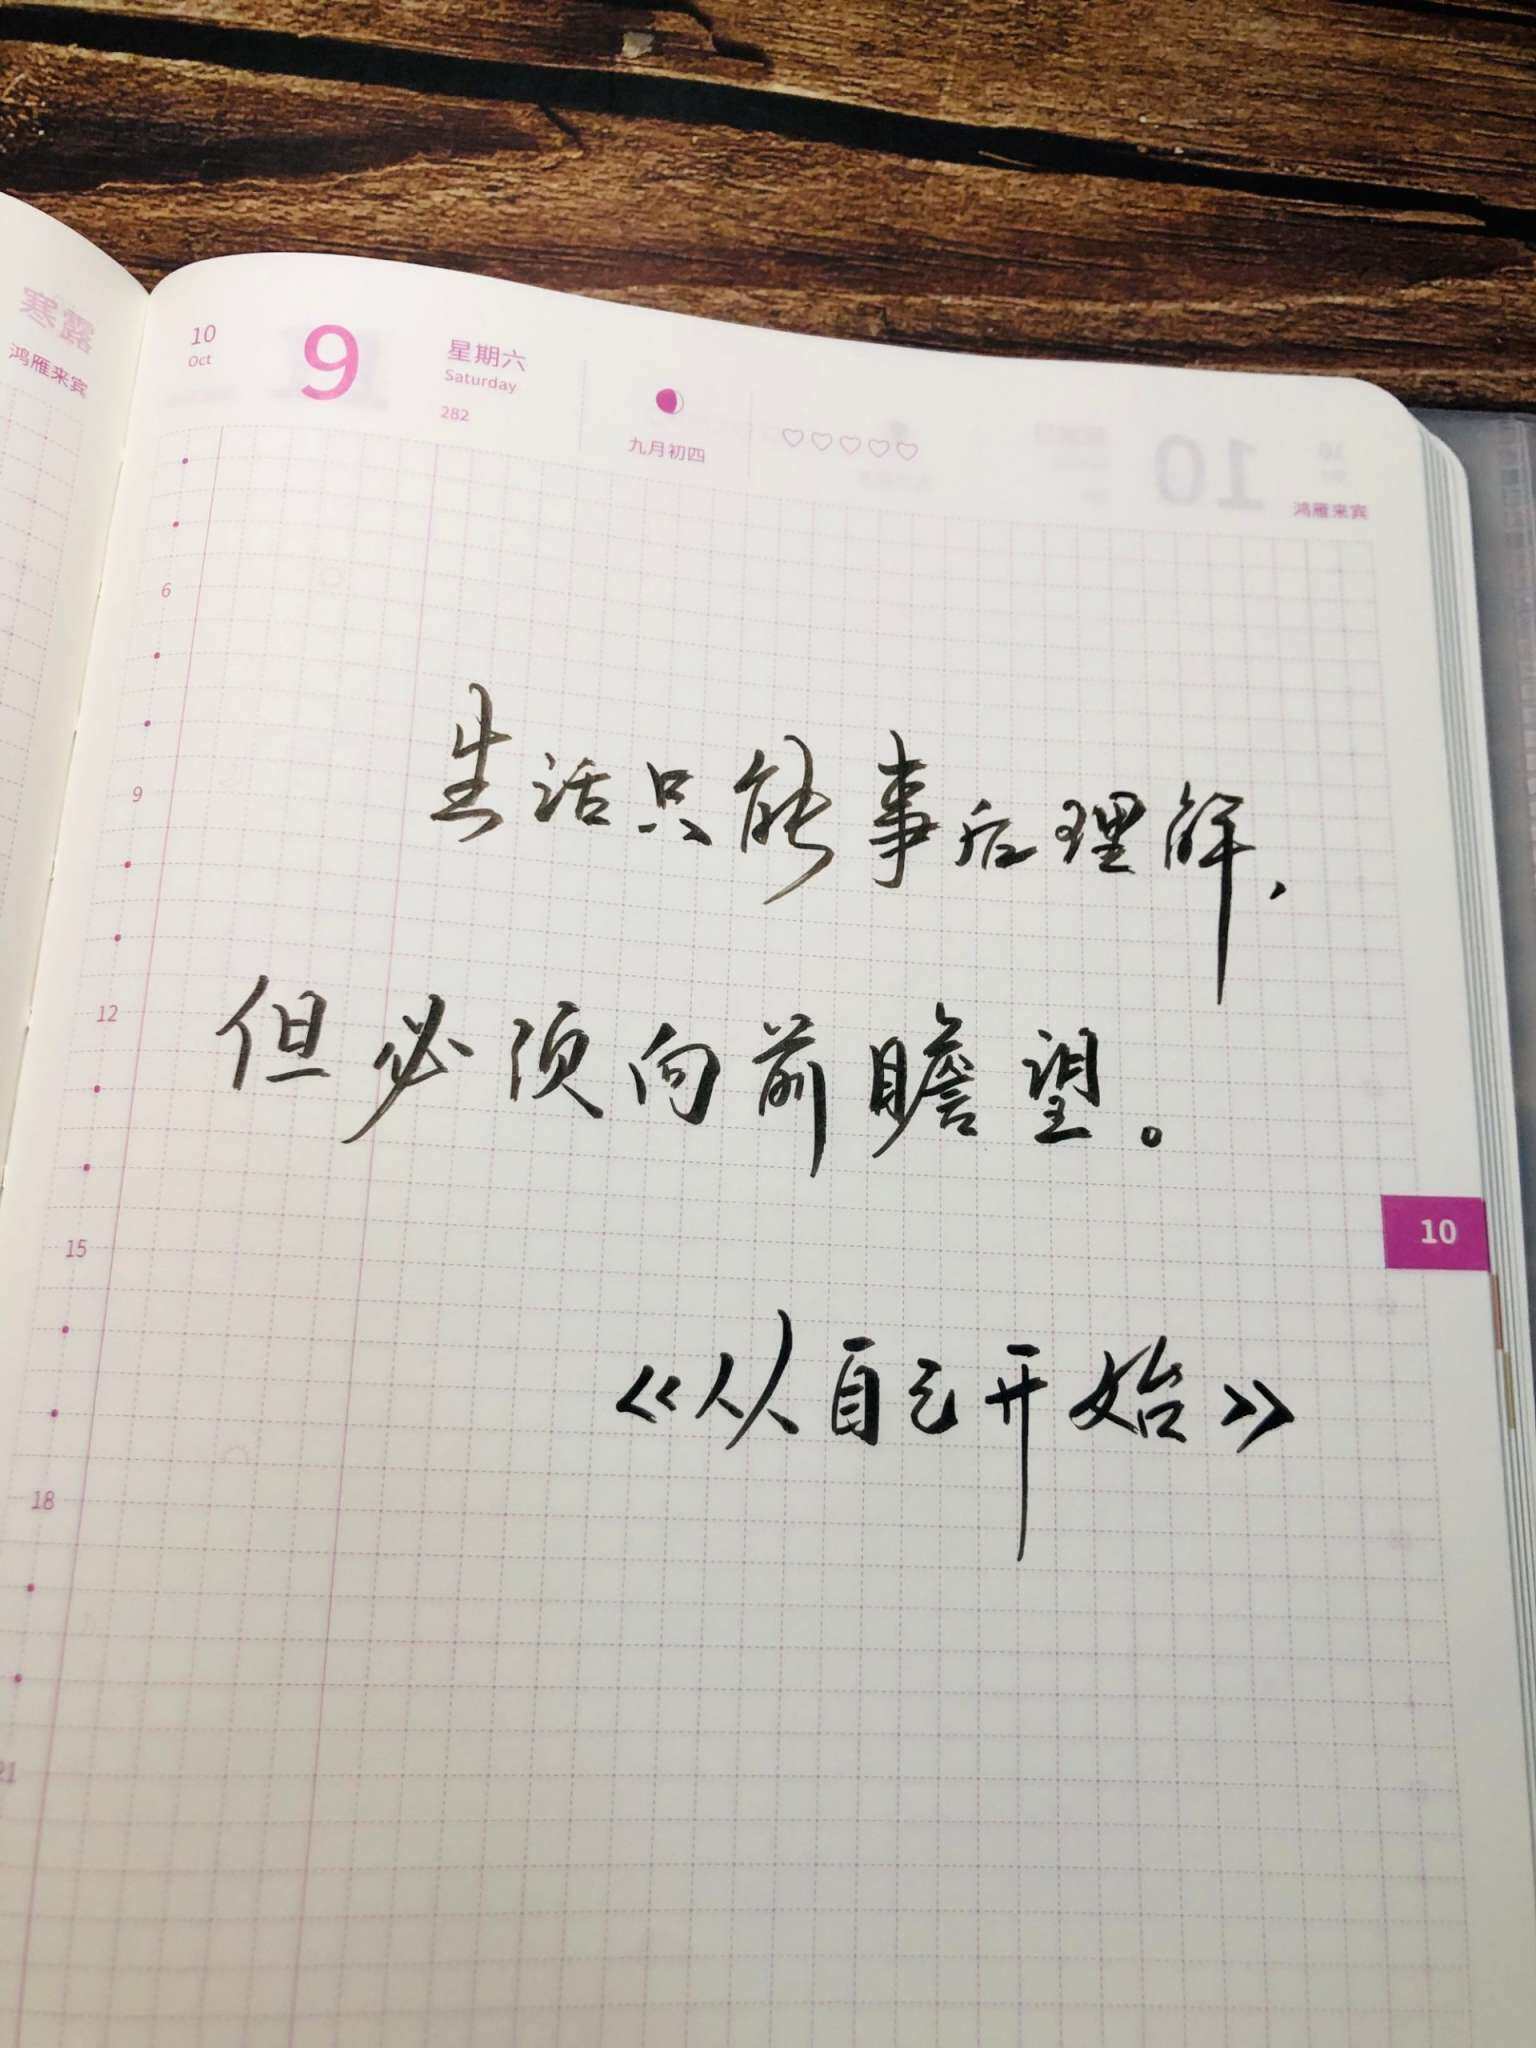 寒露
鸿雁来宾
10
Oct
9
星期六
Saturday
282
九月初四
10
鸿雁来宾
6
9
12
15
18
21
生活只能事后理解，
但必须向前瞻望。
《从自己开始》
10